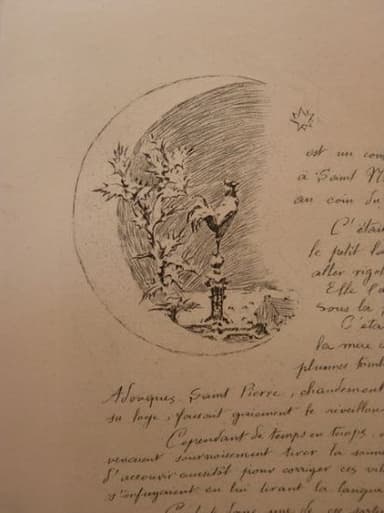 est un con
à Saint N
au coin du
C'était
le petit la
aller rigol
Elle l'a
sous la
C'éta
la mère
plumes tomb
Adonques Saint Pierre, chaudement
sa loge, faisant gaiement le réveillon
Cependant de temps en temps,
venaient sournoisement tirer la
d'accourir aussitôt pour corriger ces
s'enfuyaient en lui tirant la langue
C'est dans une de ces